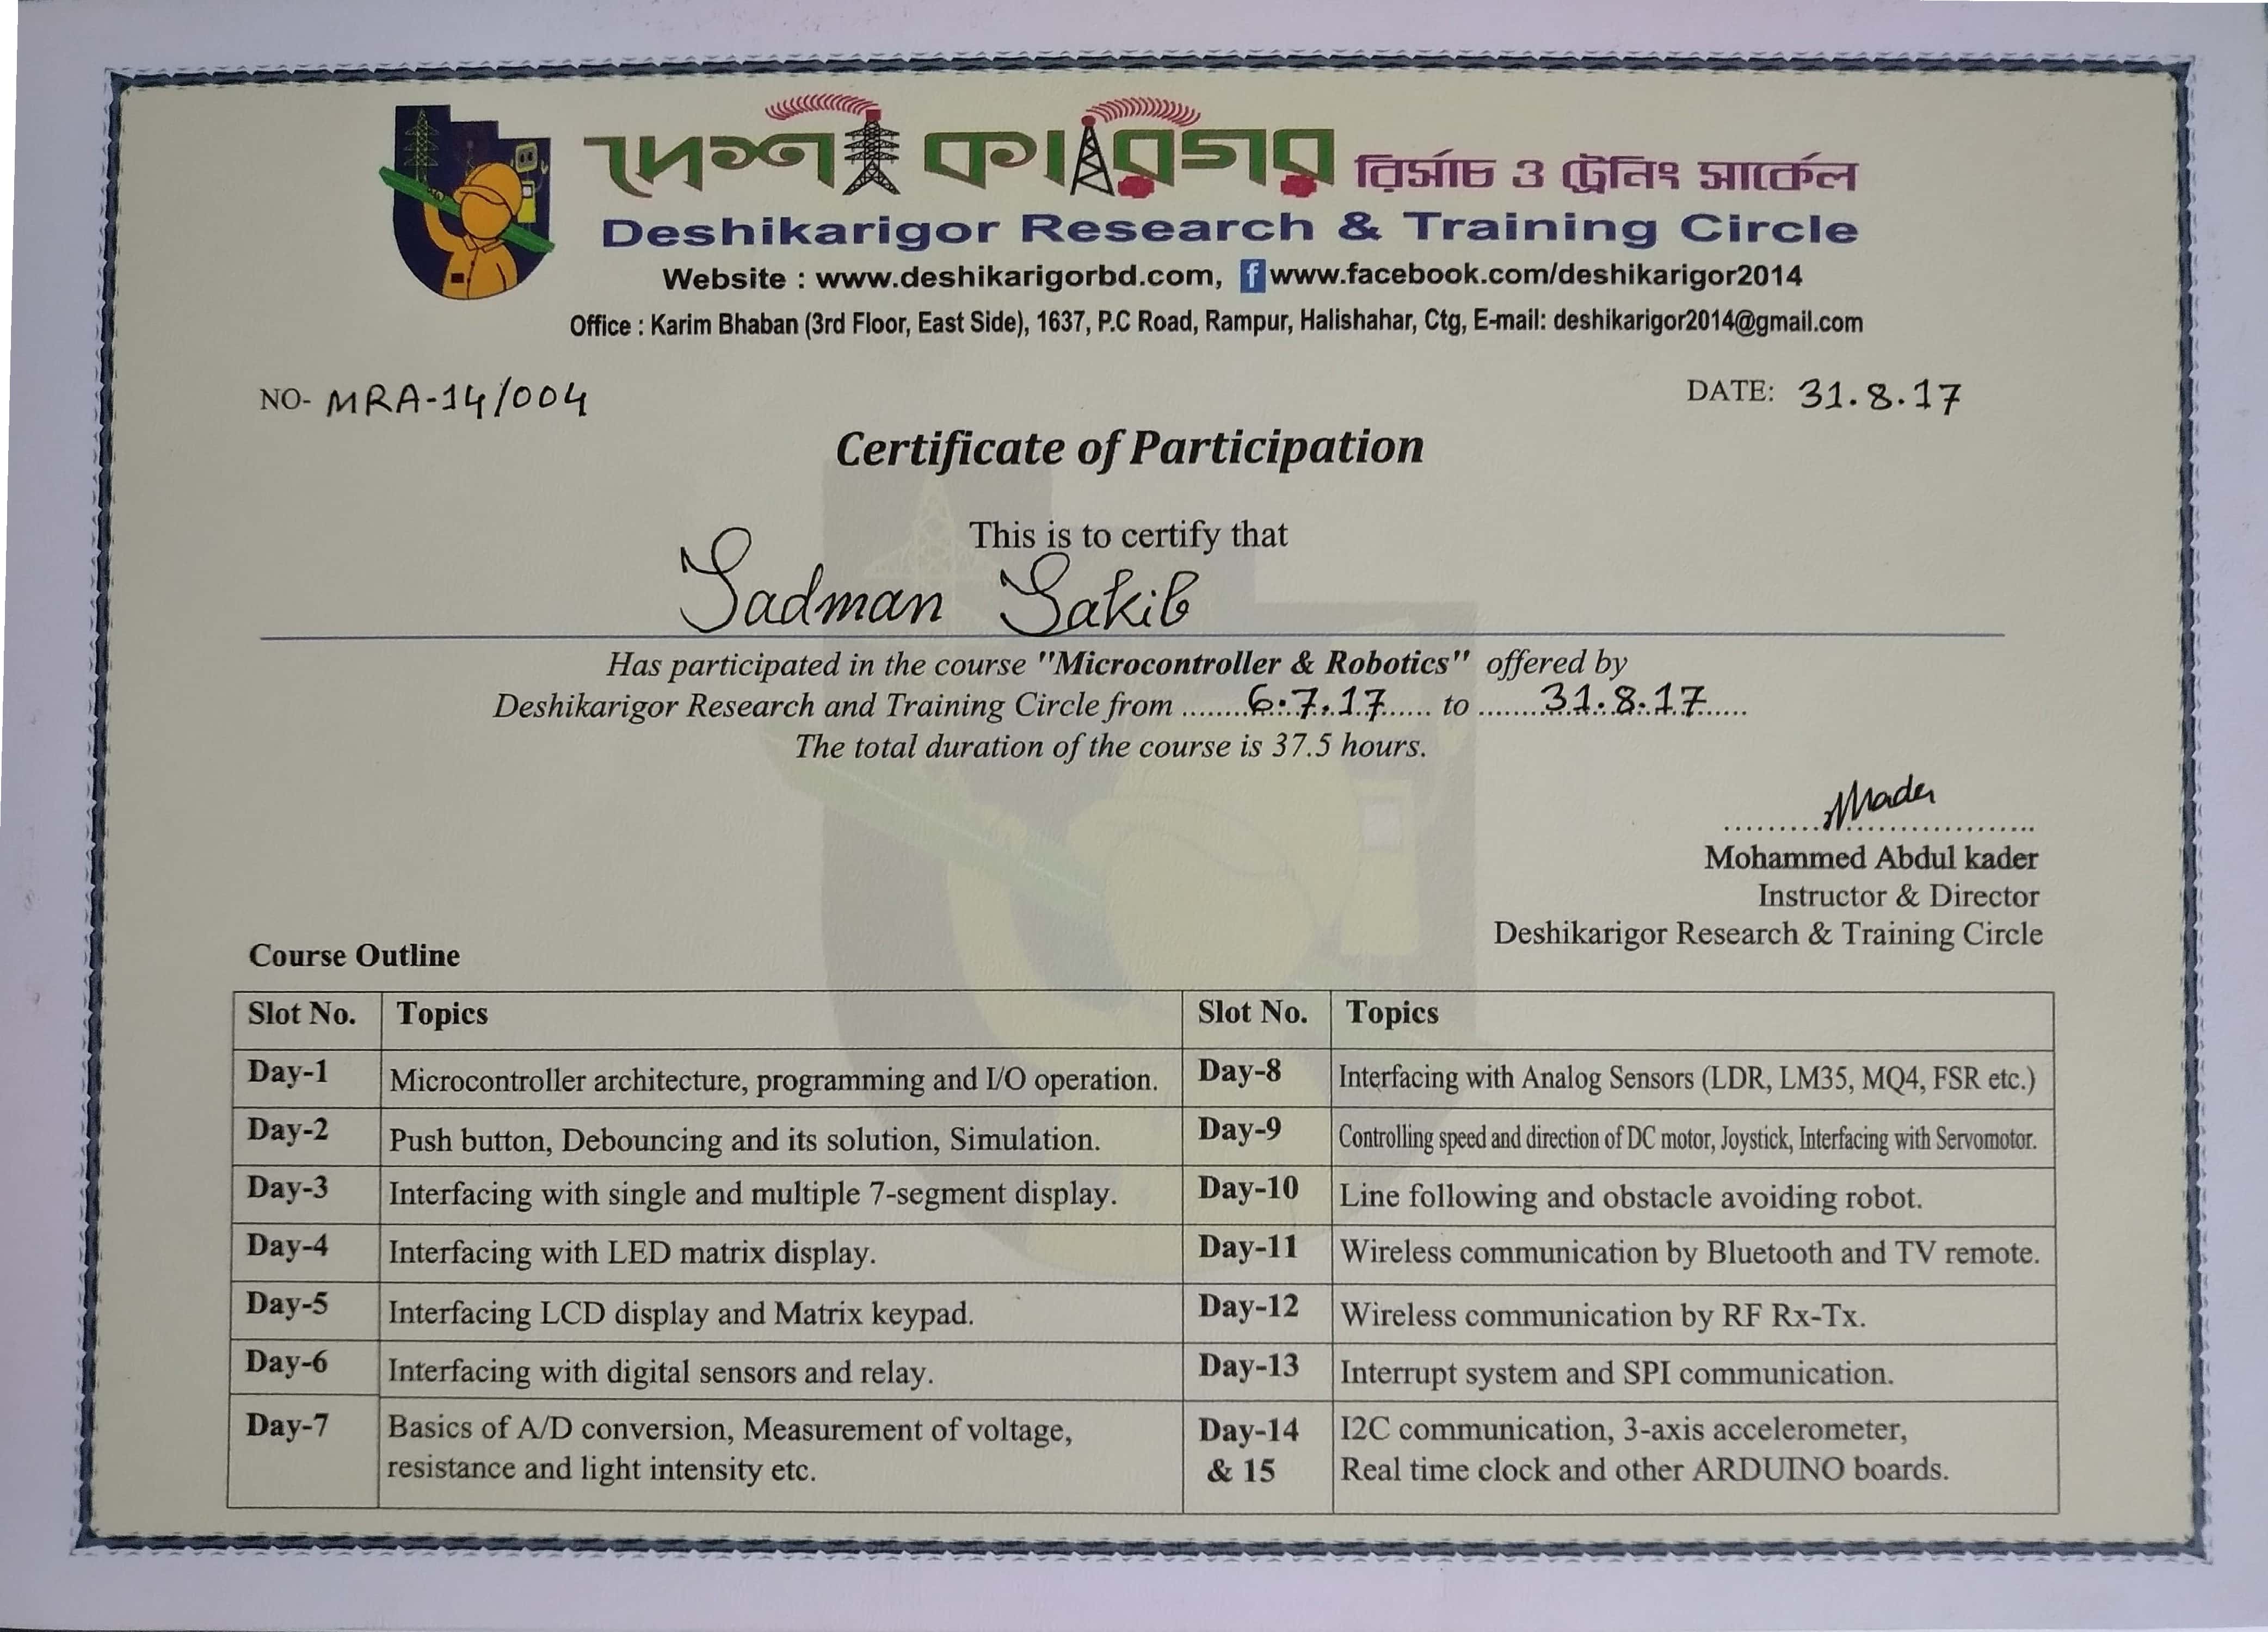 দেশী কারিগর রিসাঁচ ও ট্রেনিং সার্কেল
Deshikarigor Research & Training Circle
Website : www.deshikarigorbd.com, f www.facebook.com/deshikarigor2014
Office : Karim Bhaban (3rd Floor, East Side), 1637, P.C Road, Rampur, Halishahar, Ctg, E-mail: deshikarigor2014@gmail.com
NO- MRA-14/004 DATE: 31.8.17
Certificate of Participation
This is to certify that
Sadman Sakib
Has participated in the course "Microcontroller & Robotics" offered by
Deshikarigor Research and Training Circle from ........6.7.17...... to ........31.8.17......
The total duration of the course is 37.5 hours.
Mader
Mohammed Abdul kader
Instructor & Director
Deshikarigor Research & Training Circle
Course Outline
Slot No. Topics Slot No. Topics
Day-1 Microcontroller architecture, programming and I/O operation. Day-8 Interfacing with Analog Sensors (LDR, LM35, MQ4, FSR etc.)
Day-2 Push button, Debouncing and its solution, Simulation. Day-9 Controlling speed and direction of DC motor, Joystick, Interfacing with Servomotor.
Day-3 Interfacing with single and multiple 7-segment display. Day-10 Line following and obstacle avoiding robot.
Day-4 Interfacing with LED matrix display. Day-11 Wireless communication by Bluetooth and TV remote.
Day-5 Interfacing LCD display and Matrix keypad. Day-12 Wireless communication by RF Rx-Tx.
Day-6 Interfacing with digital sensors and relay. Day-13 Interrupt system and SPI communication.
Day-7 Basics of A/D conversion, Measurement of voltage, Day-14 I2C communication, 3-axis accelerometer,
resistance and light intensity etc. & 15 Real time clock and other ARDUINO boards.